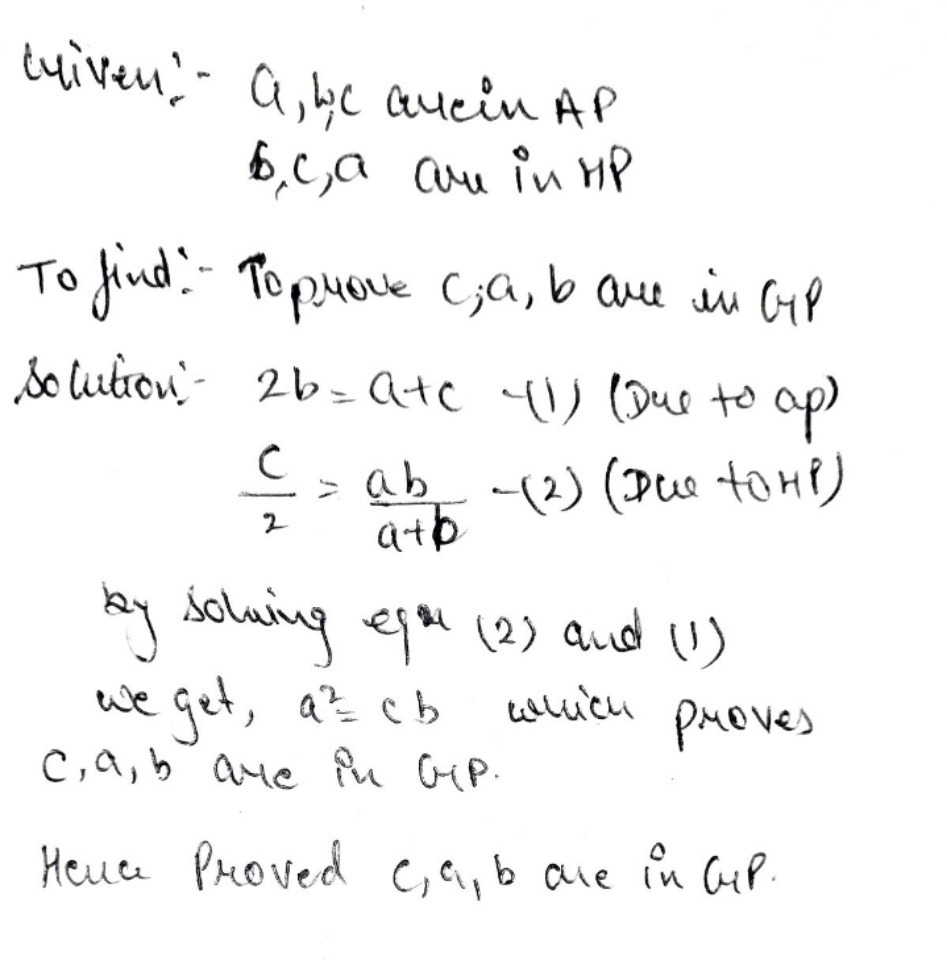 Given:- a, b, c are in AP
b, c, a are in HP
To find:- To prove c, a, b are in GP
Solution:- 2b = a+c -(1) (Due to ap)
c/2 = ab/a+b -(2) (Due to HP)
by solving eqn (2) and (1)
we get, a² = cb which proves
c, a, b are in GP.
Hence Proved c, a, b are in GP.